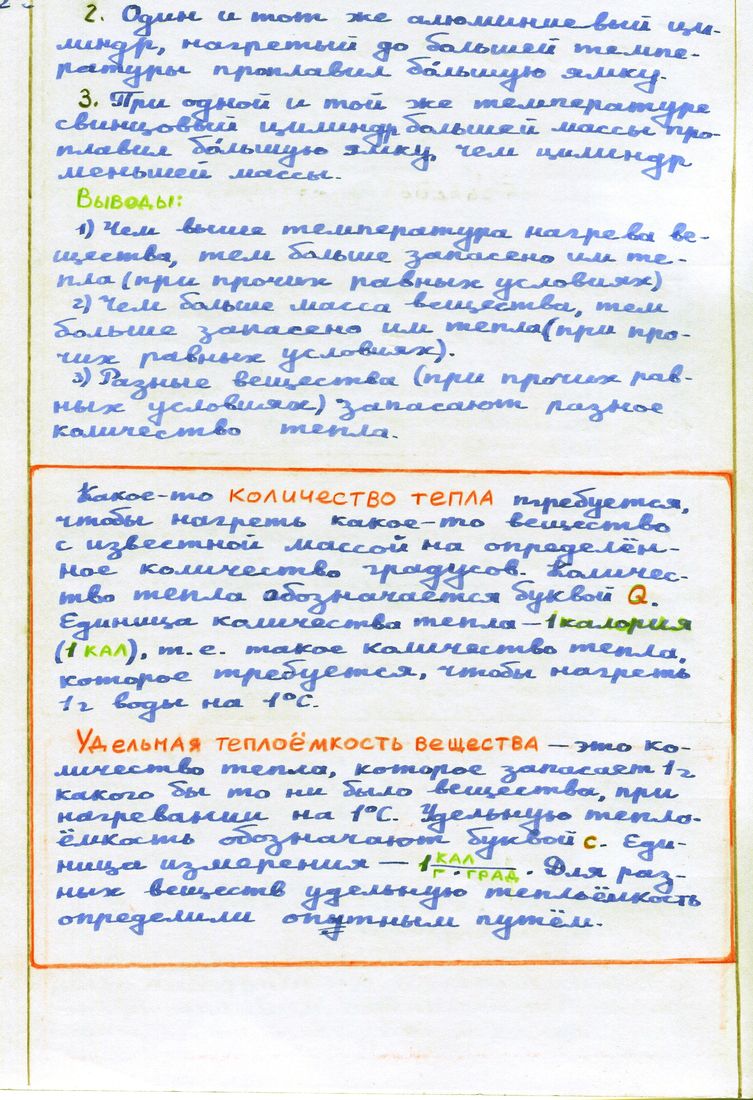 2. Один и тот же алюминиевый ци-
линдр, нагретый до большей темпе-
ратуры проплавил бо́льшую ямку.
3. При одной и той же температуре
свинцовый цилиндр большей массы про-
плавил бо́льшую ямку, чем цилиндр
меньшей массы.
Выводы:
1) Чем выше температура нагрева ве-
щества, тем больше запасено им те-
пла (при прочих равных условиях)
2) Чем больше масса вещества, тем
больше запасено им тепла (при про-
чих равных условиях).
3) Разные вещества (при прочих рав-
ных условиях) запасают разное
количество тепла.
Какое-то количество тепла требуется,
чтобы нагреть какое-то вещество
с известной массой на определён-
ное количество градусов. Количес-
тво тепла обозначается буквой Q.
Единица количества тепла – 1 калория
(1 кал), т.е. такое количество тепла,
которое требуется, чтобы нагреть
1 г воды на 1°С.
Удельная теплоёмкость вещества – это ко-
личество тепла, которое запасает 1 г
какого бы то ни было вещества, при
нагревании на 1°С. Удельную тепло-
ёмкость обозначают буквой с. Еди-
ница измерения – 1 кал/г·град. Для раз-
ных веществ удельную теплоёмкость
определили опытным путём.